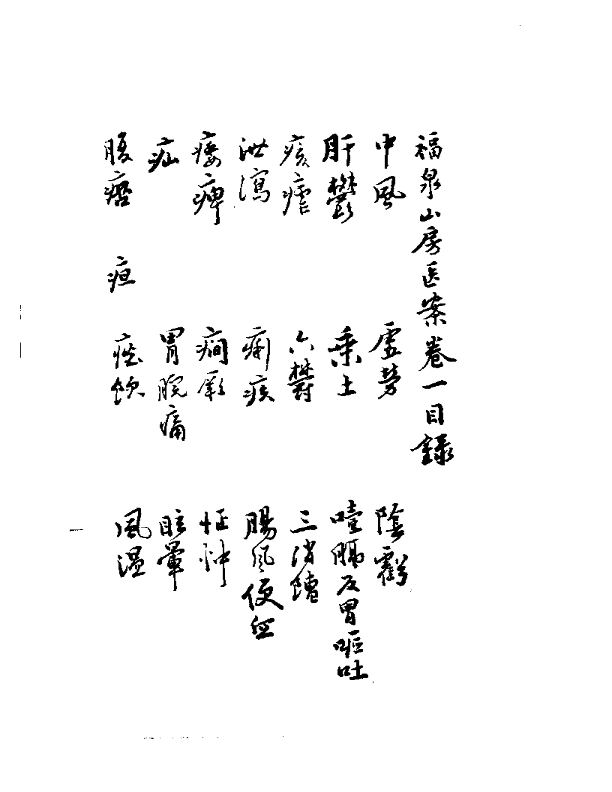 福泉山房医案卷一目錄
中風 虛勞 陰虧
肝鬱 乘土 噎膈反胃嘔吐
痎瘧 六鬱 三消
泄瀉 痢疾 腸風便血
痿痺 癇厥 怔忡
疝 胃脘痛 眩暈
腹痞 疸 痰飲 風温